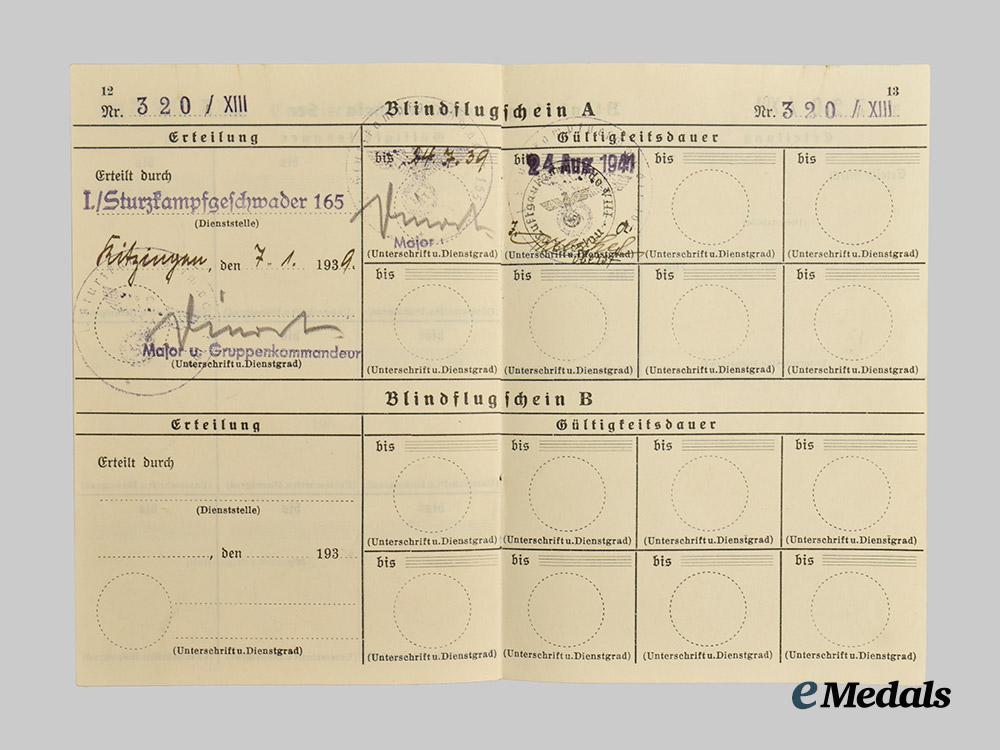 12
Nr. 320 / XIII
Blindflugschein A
13
Nr. 320 / XIII
Erteilung
Gültigkeitsdauer
Erteilt durch
I./Sturzkampfgeschwader 165
(Dienststelle)
Kitzingen, den 7. 1. 1939.
Major u. Gruppenkommandeur
(Unterschrift u. Dienstgrad)
bis 24.7.39
Major
(Unterschrift u. Dienstgrad)
bis 24 Aug. 1941
Oberst
(Unterschrift u. Dienstgrad)
bis
(Unterschrift u. Dienstgrad)
bis
(Unterschrift u. Dienstgrad)
bis
(Unterschrift u. Dienstgrad)
bis
(Unterschrift u. Dienstgrad)
bis
(Unterschrift u. Dienstgrad)
bis
(Unterschrift u. Dienstgrad)
Blindflugschein B
Erteilung
Gültigkeitsdauer
Erteilt durch
(Dienststelle)
, den 193
(Unterschrift u. Dienstgrad)
bis
(Unterschrift u. Dienstgrad)
bis
(Unterschrift u. Dienstgrad)
bis
(Unterschrift u. Dienstgrad)
bis
(Unterschrift u. Dienstgrad)
bis
(Unterschrift u. Dienstgrad)
bis
(Unterschrift u. Dienstgrad)
bis
(Unterschrift u. Dienstgrad)
bis
(Unterschrift u. Dienstgrad)
eMedals